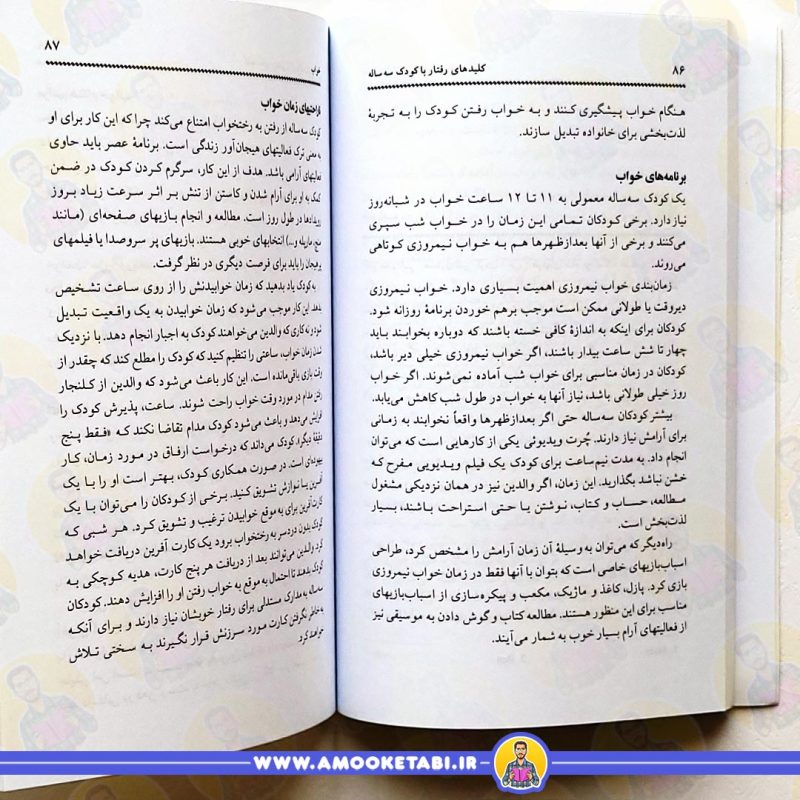 ۸۶
کلیدهای رفتار با کودک سه ساله
هنگام خواب پیشگیری کنند و به خواب رفتن کودک را به تجربهٔ
لذت‌بخشی برای خانواده تبدیل سازند.
برنامه‌های خواب
یک کودک سه‌ساله معمولی به ۱۱ تا ۱۲ ساعت خواب در شبانه‌روز
نیاز دارد. برخی کودکان تمامی این زمان را در خواب شب سپری
می‌کنند و برخی از آنها بعدازظهرها هم به خواب نیمروزی کوتاهی
می‌روند.
زمان‌بندی خواب نیمروزی اهمیت بسیاری دارد. خواب نیمروزی
دیروقت یا طولانی ممکن است موجب برهم خوردن برنامهٔ روزانه شود.
کودکان برای اینکه به اندازهٔ کافی خسته باشند که دوباره بخوابند باید
چهار تا شش ساعت بیدار باشند، اگر خواب نیمروزی خیلی دیر باشد،
کودکان در زمان مناسبی برای خواب شب آماده نمی‌شوند. اگر خواب
روز خیلی طولانی باشد، نیاز آنها به خواب در طول شب کاهش می‌یابد.
بیشتر کودکان سه‌ساله حتی اگر بعدازظهرها واقعاً نخوابند به زمانی
برای آرامش نیاز دارند. چُرت ویدیوئی یکی از کارهایی است که می‌توان
انجام داد. به مدت نیم‌ساعت برای کودک یک فیلم ویدیویی مفرح که
خشن نباشد بگذارید. این زمان، اگر والدین نیز در همان نزدیکی مشغول
مطالعه، حساب و کتاب، نوشتن یا حتی استراحت باشند، بسیار
لذت‌بخش است.
راه‌دیگر که می‌توان به وسیلهٔ آن زمان آرامش را مشخص کرد، طراحی
اسباب‌بازیهای خاصی است که بتوان با آنها فقط در زمان خواب نیمروزی
بازی کرد. پازل، کاغذ و ماژیک، مکعب و پیکره‌سازی از اسباب‌بازیهای
مناسب برای این منظور هستند. مطالعه کتاب و گوش دادن به موسیقی نیز
از فعالیتهای آرام بسیار خوب به شمار می‌آیند.
خواب
۸۷
ناراحتیهای زمان خواب
کودک سه‌ساله از رفتن به رختخواب امتناع می‌کند چرا که این کار برای او
به معنی ترک فعالیتهای هیجان‌آور زندگی است. برنامهٔ عصر باید حاوی
فعالیتهای آرامی باشد. هدف از این کار، سرگرم کردن کودک در ضمن
کمک به او برای آرام شدن و کاستن از تنش بر اثر سرعت زیاد بروز
رویدادها در طول روز است. مطالعه و انجام بازیهای صفحه‌ای (مانند
منچ، مارپله و...) انتخابهای خوبی هستند. بازیهای پر سروصدا یا فیلمهای
پرهیجان را باید برای فرصت دیگری در نظر گرفت.
به کودک یاد بدهید که زمان خوابیدنش را از روی ساعت تشخیص
بدهد. این کار موجب می‌شود که زمان خوابیدن به یک واقعیت تبدیل
شود و نه کاری که والدین می‌خواهند کودک به اجبار انجام دهد. با نزدیک
شدن زمان خواب، ساعتی را تنظیم کنید که کودک را مطلع کند که چقدر از
وقت بازی باقی‌مانده است. این کار باعث می‌شود که والدین از کلنجار
رفتن مدام در مورد وقت خواب راحت شوند. ساعت، پذیرش کودک را
افزایش می‌دهد و باعث می‌شود کودک مدام تقاضا نکند که «فقط پنج
دقیقهٔ دیگر». کودک می‌داند که درخواست ارفاق در مورد زمان، کار
بیهوده‌ای است. در صورت همکاری کودک، بهتر است او را با یک
آفرین یا نوازش تشویق کنید. برخی از کودکان را می‌توان با یک
کارت آفرین برای به موقع خوابیدن ترغیب و تشویق کرد. هر شبی که
کودک بدون دردسر به رختخواب برود یک کارت آفرین دریافت خواهد
کرد. والدین می‌توانند بعد از دریافت هر پنج کارت، هدیه کوچکی به
کودک بدهند تا احتمال به موقع به خواب رفتن او را افزایش دهند. کودکان
سه‌ساله به مدارک مستدلی برای رفتار خویشان نیاز دارند و برای آنکه
به خاطر نگرفتن کارت مورد سرزنش قرار نگیرند به سختی تلاش
خواهند کرد.
WWW.AMOOKETABI.IR